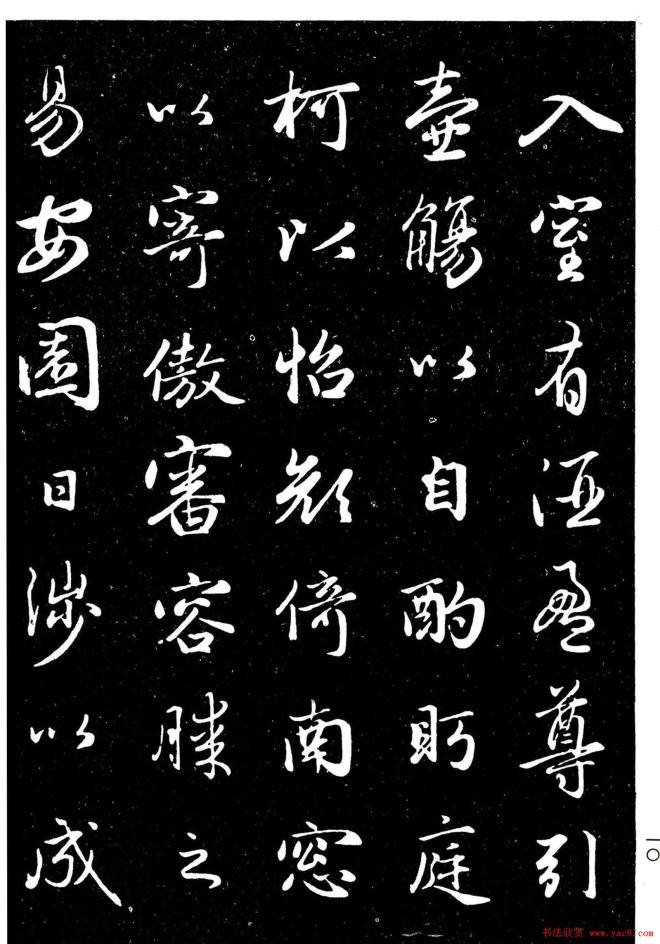 入室有酒盈尊引
壺觴以自酌眄庭
柯以怡顏倚南窓
以寄傲審容膝之
易安園日涉以成
一〇
书法欣赏 www.yac8.com